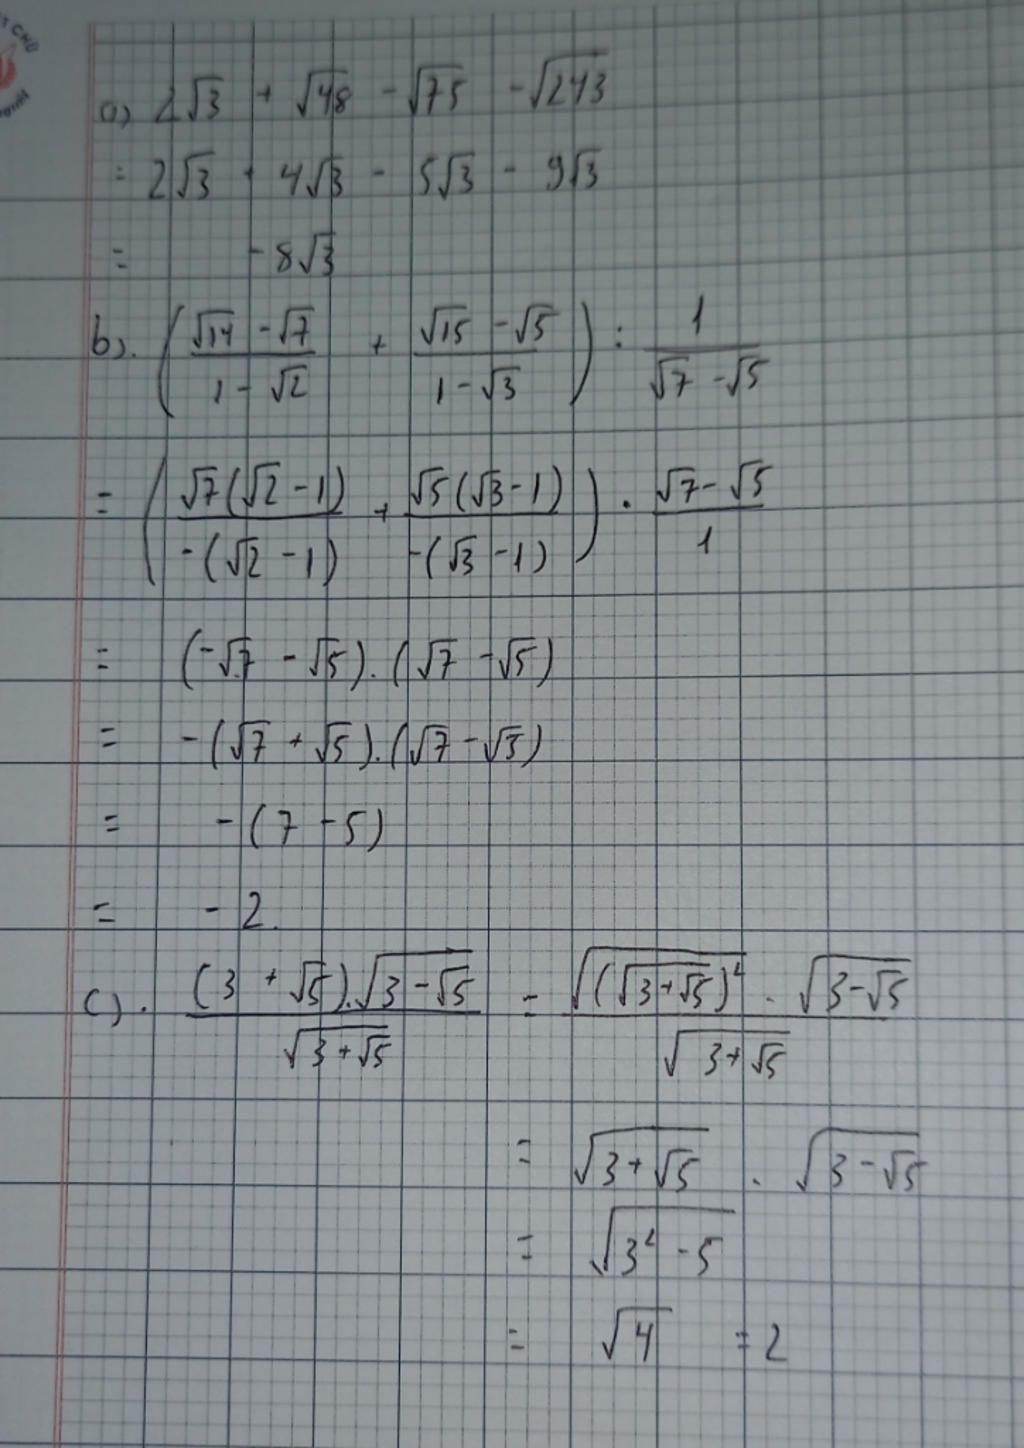 a) 2√3 + √48 - √75 - √243
= 2√3 + 4√3 - 5√3 - 9√3
= -8√3
b). ( (√14 - √7)/(1 - √2) + (√15 - √5)/(1 - √3) ) : 1/(√7 - √5)
= ( √7(√2 - 1)/(-(√2 - 1)) + √5(√3 - 1)/(-(√3 - 1)) ) . (√7 - √5)/1
= (-√7 - √5).(√7 - √5)
= -(√7 + √5).(√7 - √5)
= -(7 - 5)
= -2.
c). (3 + √5).√(3 - √5) / √(3 + √5) = √((√(3 + √5))²) . √(3 - √5) / √(3 + √5)
= √(3 + √5) . √(3 - √5)
= √(3² - 5)
= √4 = 2